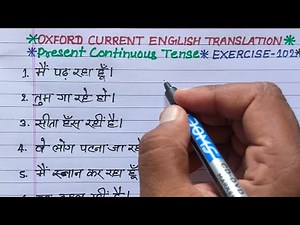 *OXFORD CURRENT ENGLISH TRANSLATION*
*Present Continuous Tense* EXERCISE-102*
1. मैं पढ़ रहा हूँ।
2. तुम गा रहे हो।
3. सीता हँस रही है।
4. वे लोग पटना जा रहे
5. मैं स्नान कर रहा हूँ